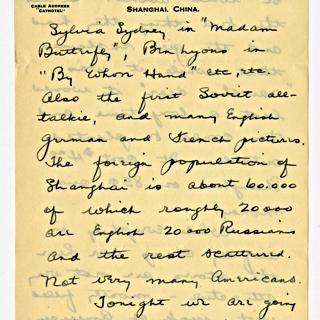 CABLE ADDRESS
"CATHOTEL"
SHANGHAI, CHINA.
Sylvia Sydney in "Madam
Butterfly", Ben Lyons in
"By Whose Hand" etc, etc.
Also the first Soviet all-
talkie, and many English
german and French pictures.
The foreign population of
Shanghai is about 60.000
of which roughly 20000
are English 20000 Russians
and the rest scattered.
Not very many Americans.
Tonight we are going